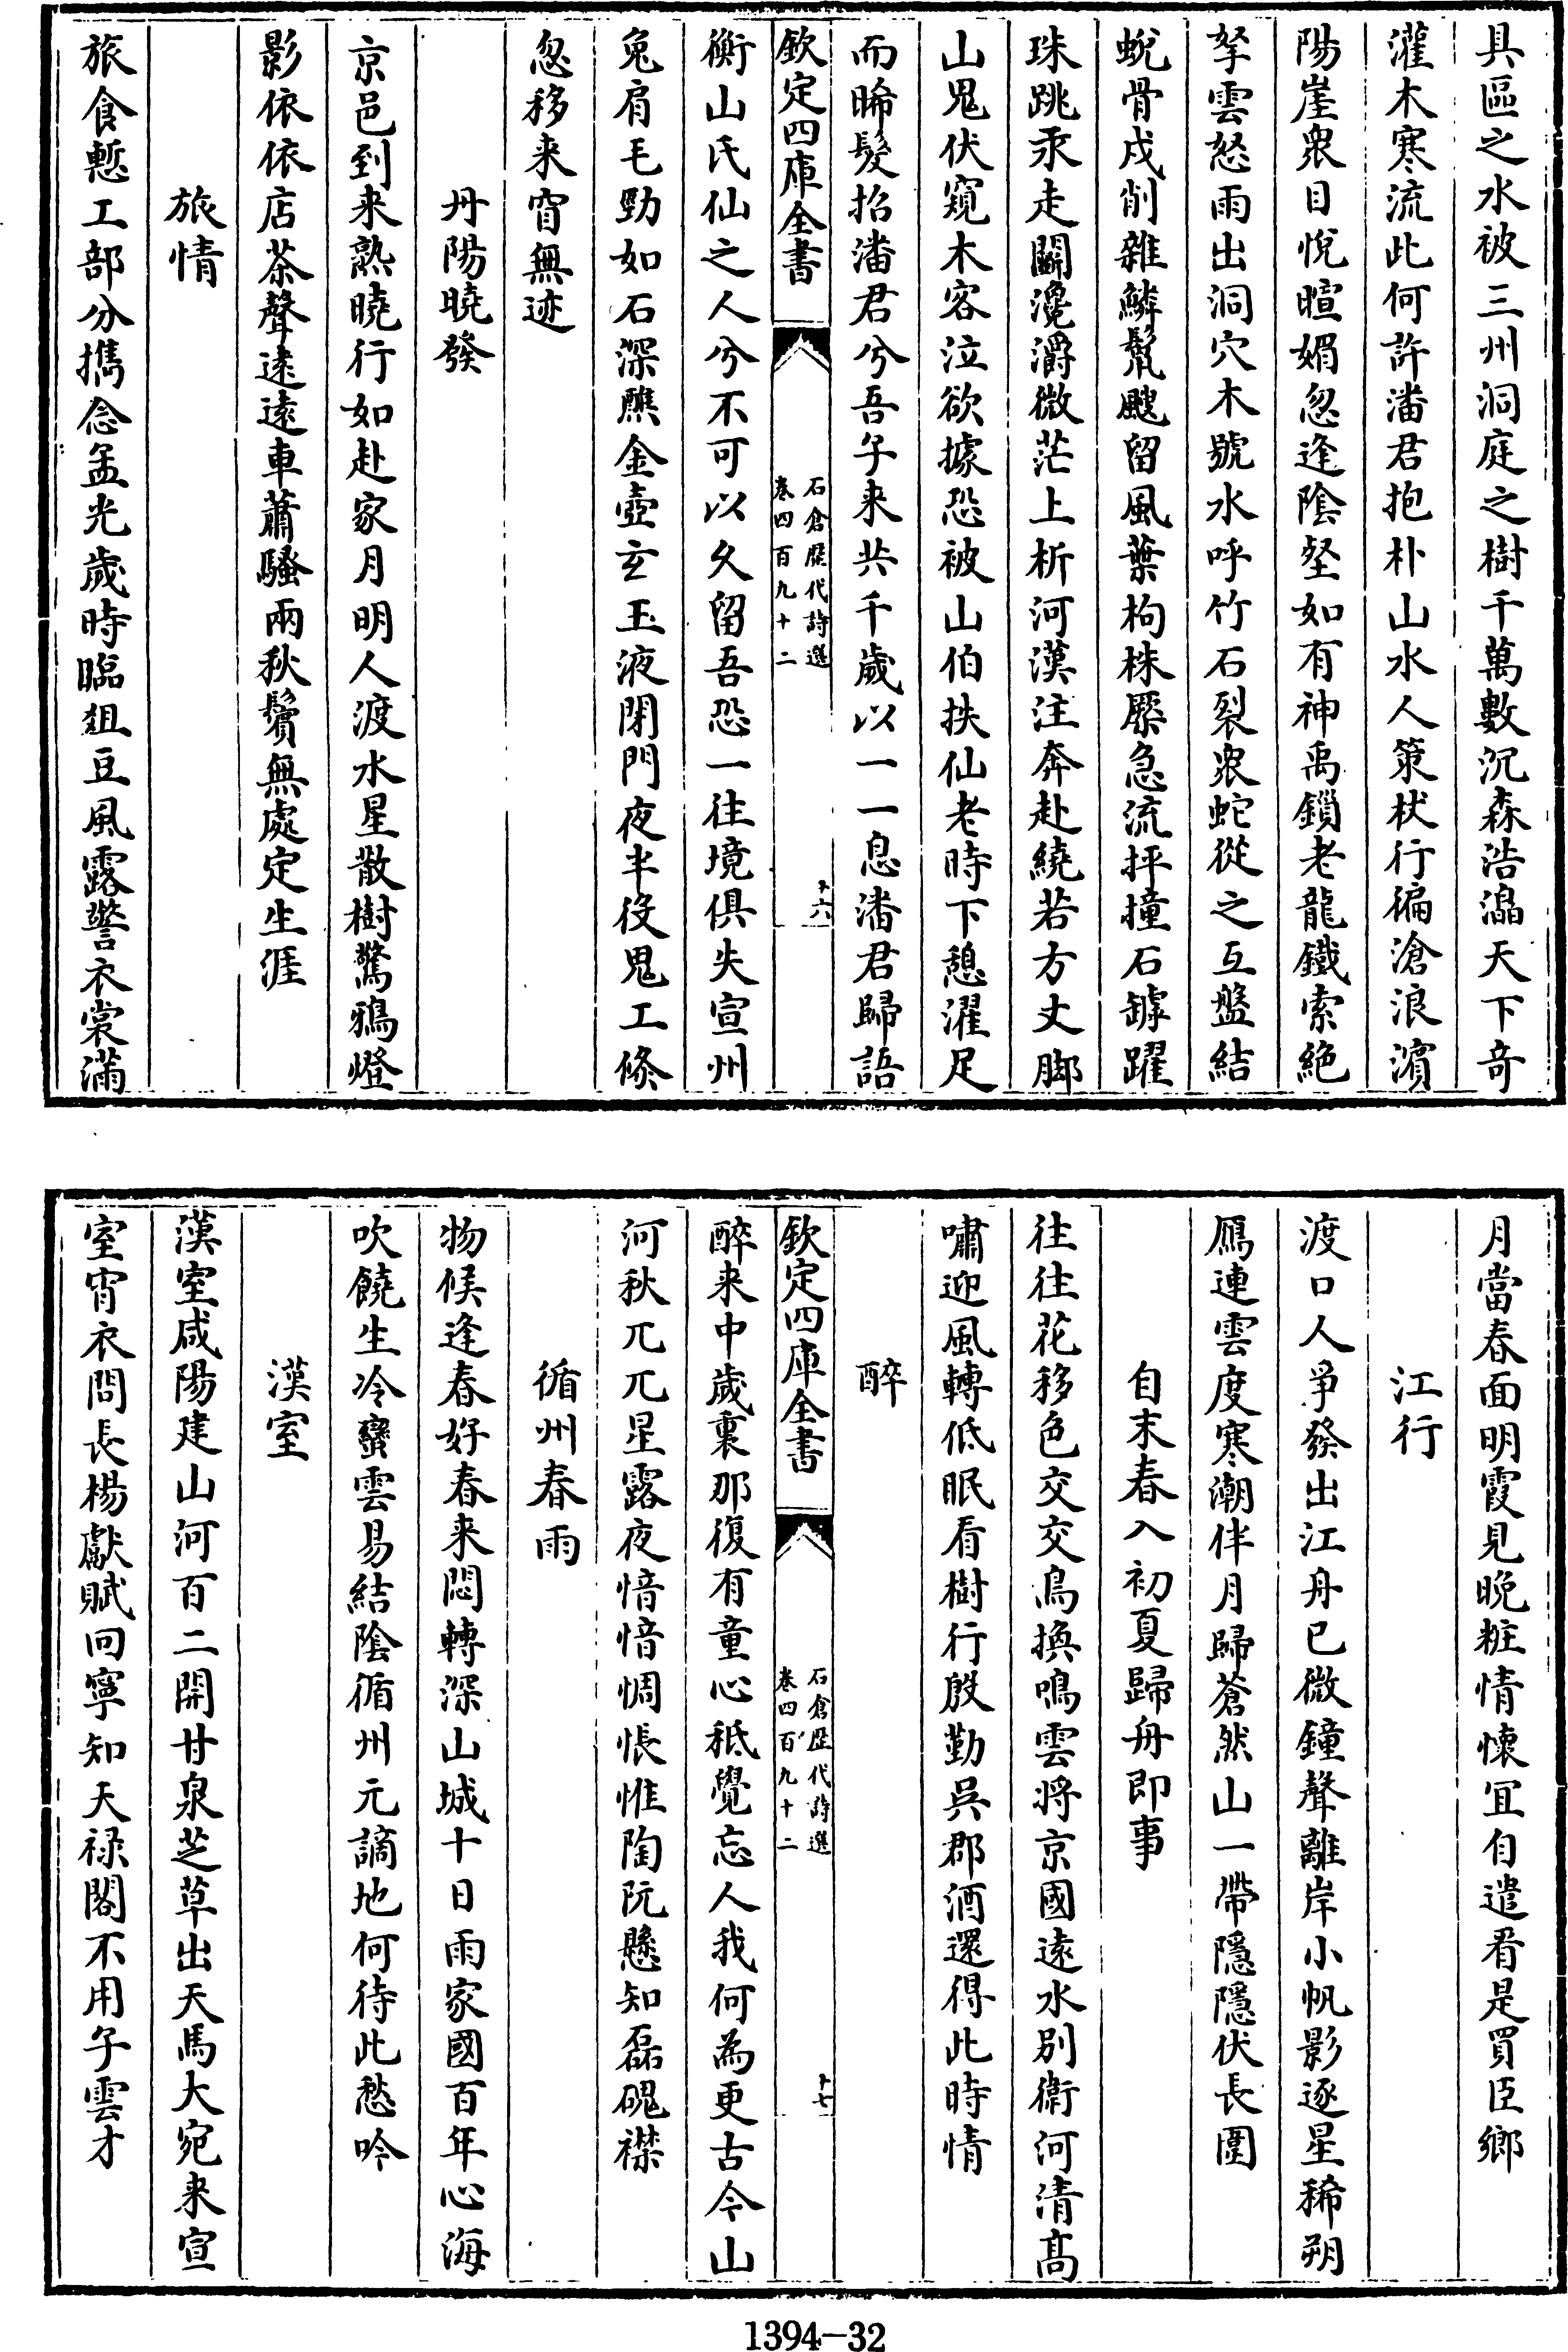 具區之水被三州洞庭之樹千萬數沉森浩瀛天下奇
灌木寒流此何許潘君抱朴山水人策杖行徧滄浪濱
陽崖衆目悅暄媚忽逢陰壑如有神禹鎖老龍鐵索絶
拏雲怒雨出洞穴木號水呼竹石裂衆蛇從之互盤結
蛻骨戍削雜鱗鬛颼留風葉枸株縣急流抨撞石罅躍
珠跳汞走鬭灂微茫上析河漢注奔赴繞若方丈脚
山鬼伏窺木客泣欲據恐被山伯抶仙老時下憩濯足
而晞髮招潘君兮吾子来共千歲以一一息潘君歸語
欽定四庫全書
石倉歷代詩選
卷四百九十二
十六
衡山氏仙之人兮不可以久留吾恐一往境俱失宣州
兔肩毛勁如石深醮金壺玄玉液閉門夜半役鬼工倐
忽移来窅無迹
丹陽曉發
京邑到来熟曉行如赴家月明人渡水星散樹驚鴉燈
影依依店茶聲逺逺車蕭騷兩秋鬢無處定生涯
旅情
旅食慙工部分擕念孟光歲時臨俎豆風露警衣裳滿
月當春面明霞見晚粧情懷冝自遣看是買臣鄉
江行
渡口人爭發出江舟已微鐘聲離岸小帆影逐星稀朔
鴈連雲度寒潮伴月歸蒼然山一帶隱隱伏長圍
自末春入初夏歸舟即事
往往花移色交交鳥換鳴雲將京國遠水別衛河清髙
嘯迎風轉低眠看樹行殷勤吳郡酒還得此時情
醉
欽定四庫全書
石倉歷代詩選
卷四百九十二
十七
醉来中歲裏那復有童心秪覺忘人我何為更古今山
河秋兀兀星露夜愔愔惆悵惟陶阮懸知磊磈襟
循州春雨
物候逢春好春来悶轉深山城十日雨家國百年心海
吹饒生冷蠻雲易結陰循州元謫地何待此愁吟
漢室
漢室咸陽建山河百二開甘泉芝草出天馬大宛来宣
室宵衣問長楊獻賦回寧知天禄閣不用子雲才
1394-32